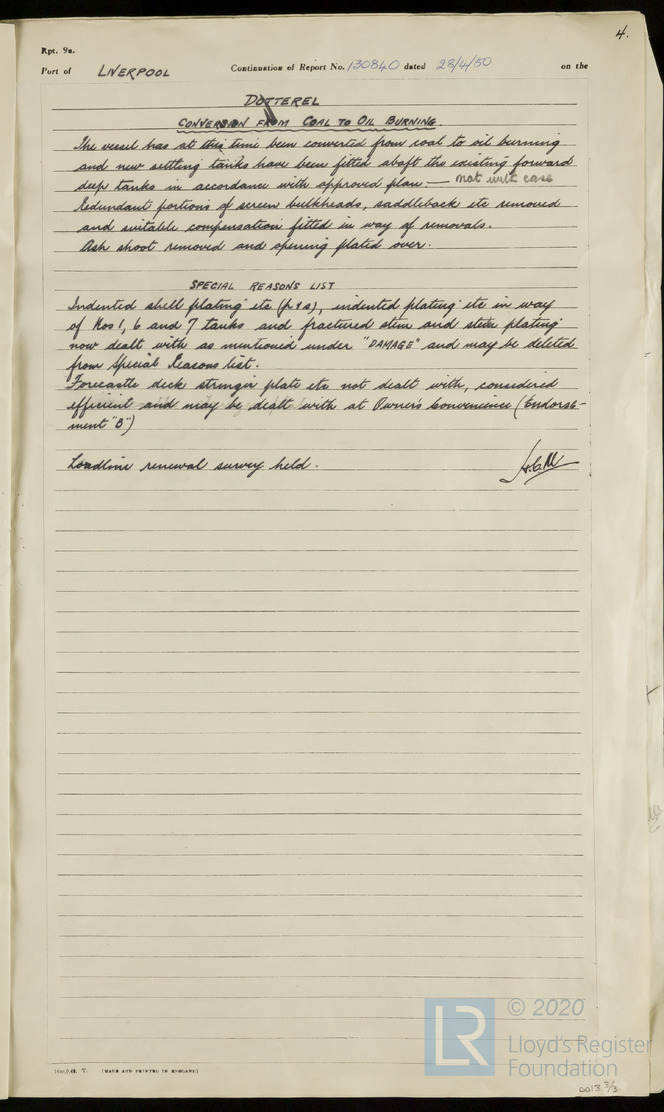 4.
Rpt. 9a.
Port of LIVERPOOL Continuation of Report No. 130840 dated 28/4/50 on the
DOTTEREL
CONVERSION FROM COAL TO OIL BURNING.
The vessel has at this time been converted from coal to oil burning
and new settling tanks have been fitted abaft the existing forward
deep tanks in accordance with approved plan. — not with case
Redundant portions of screen bulkheads, saddleback etc removed
and suitable compensation fitted in way of removals.
Ash shoot removed and opening plated over.
SPECIAL REASONS LIST
Indented shell plating etc (p & s), indented plating etc in way
of Nos 1, 6 and 7 tanks and fractured stem and stem plating
now dealt with as mentioned under "DAMAGE" and may be deleted
from Special Reasons list.
Forecastle deck stringer plate etc not dealt with, considered
efficient and may be dealt with at Owner's convenience (Endorse-
ment "B")
Loadline renewal survey held.
(MADE AND PRINTED IN ENGLAND)
LR
© 2020
Lloyd's Register
Foundation
0013 3/3